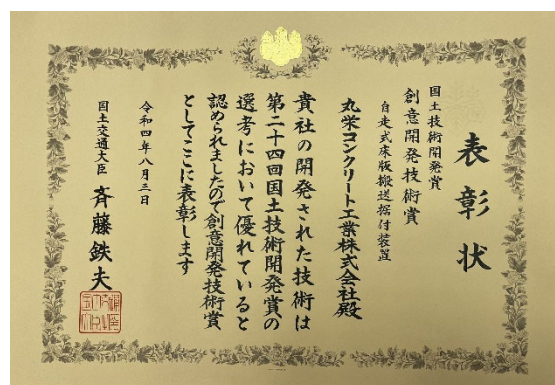 表彰状
国土技術開発賞
創意開発技術賞
自走式床版搬送据付装置
丸栄コンクリート工業株式会社殿
貴社の開発された技術は
第二十四回国土技術開発賞の
選考において優れていると
認められましたので創意開発技術賞
としてここに表彰します
令和四年八月三日
国土交通大臣 斉藤鉄夫